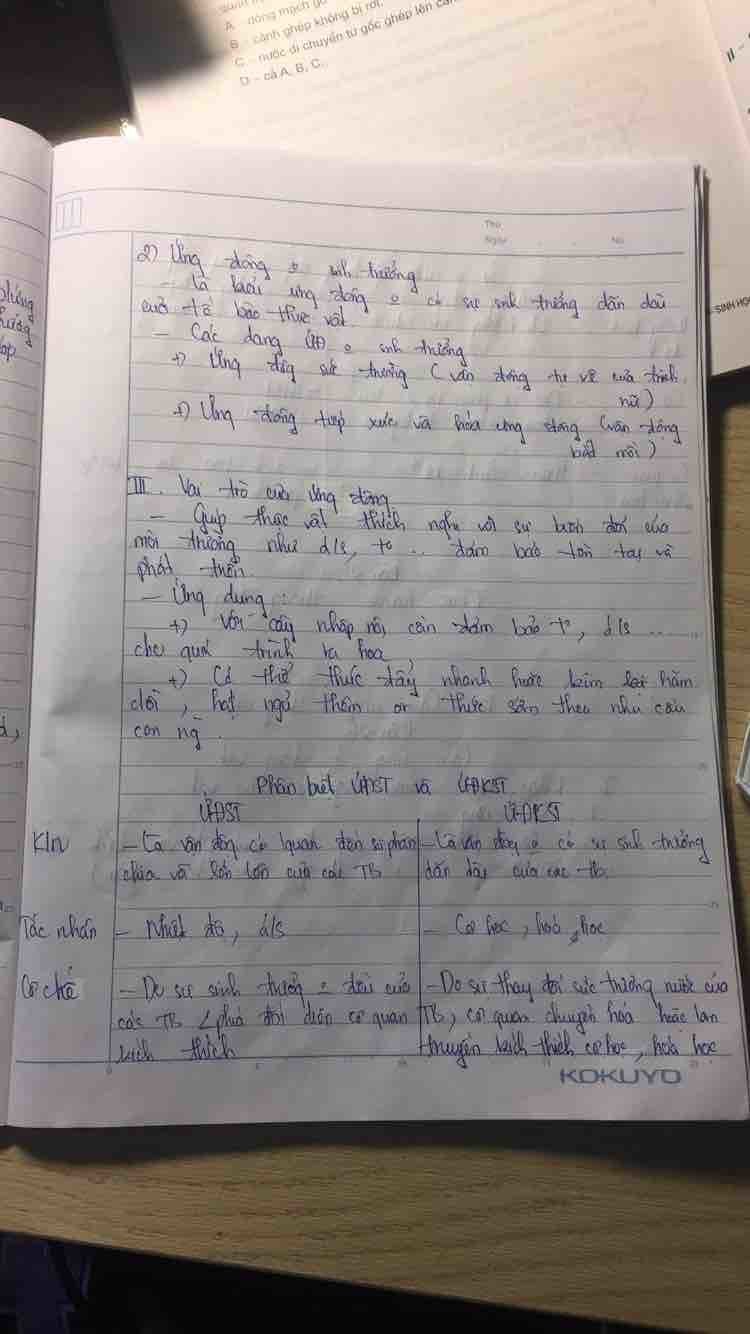 A – dòng mạch gỗ
B – cành ghép không bị rơi.
C – nước di chuyển từ gốc ghép lên
D – cả A, B, C.
II –
SINH HỌC
Thứ
Ngày No.
2) Ứng động o sinh trưởng
- Là kiểu ứng động o có sự sinh trưởng dãn dài
của tế bào thực vật.
- Các dạng ƯĐ o sinh trưởng
+) Ứng động sức trương (vận động tự vệ của trinh
nữ)
+) Ứng động tiếp xúc và hóa ứng động (vận động
bắt mồi)
III. Vai trò của ứng động
- Giúp thực vật thích nghi với sự biến đổi của
môi trường như á/s, to .. đảm bảo tồn tại và
phát triển.
- Ứng dụng :
+) Với cây nhập nội cần đảm bảo to, á/s ...
cho quá trình ra hoa
+) Có thể thúc đẩy nhanh hoặc kìm lại hãm
chồi, hạt ngủ thêm or thức sớm theo nhu cầu
con ng.
Phân biệt ƯĐST và ƯĐKST
ƯĐST ƯĐKST
K/n - Là vận động có lquan đến sự phân - Là vận động o có sự sinh trưởng
chia và lớn lên của các TB dãn dài của các tb.
Tác nhân - Nhiệt độ, á/s - Cơ học, hoá học
Cơ chế - Do sự sinh trưởng o đều của - Do sự thay đổi sức trương nước của
các TB phía đối diện cơ quan TB, cơ quan chuyên hóa hoặc lan
kích thích truyền kích thích cơ học, hoá học
KOKUYO